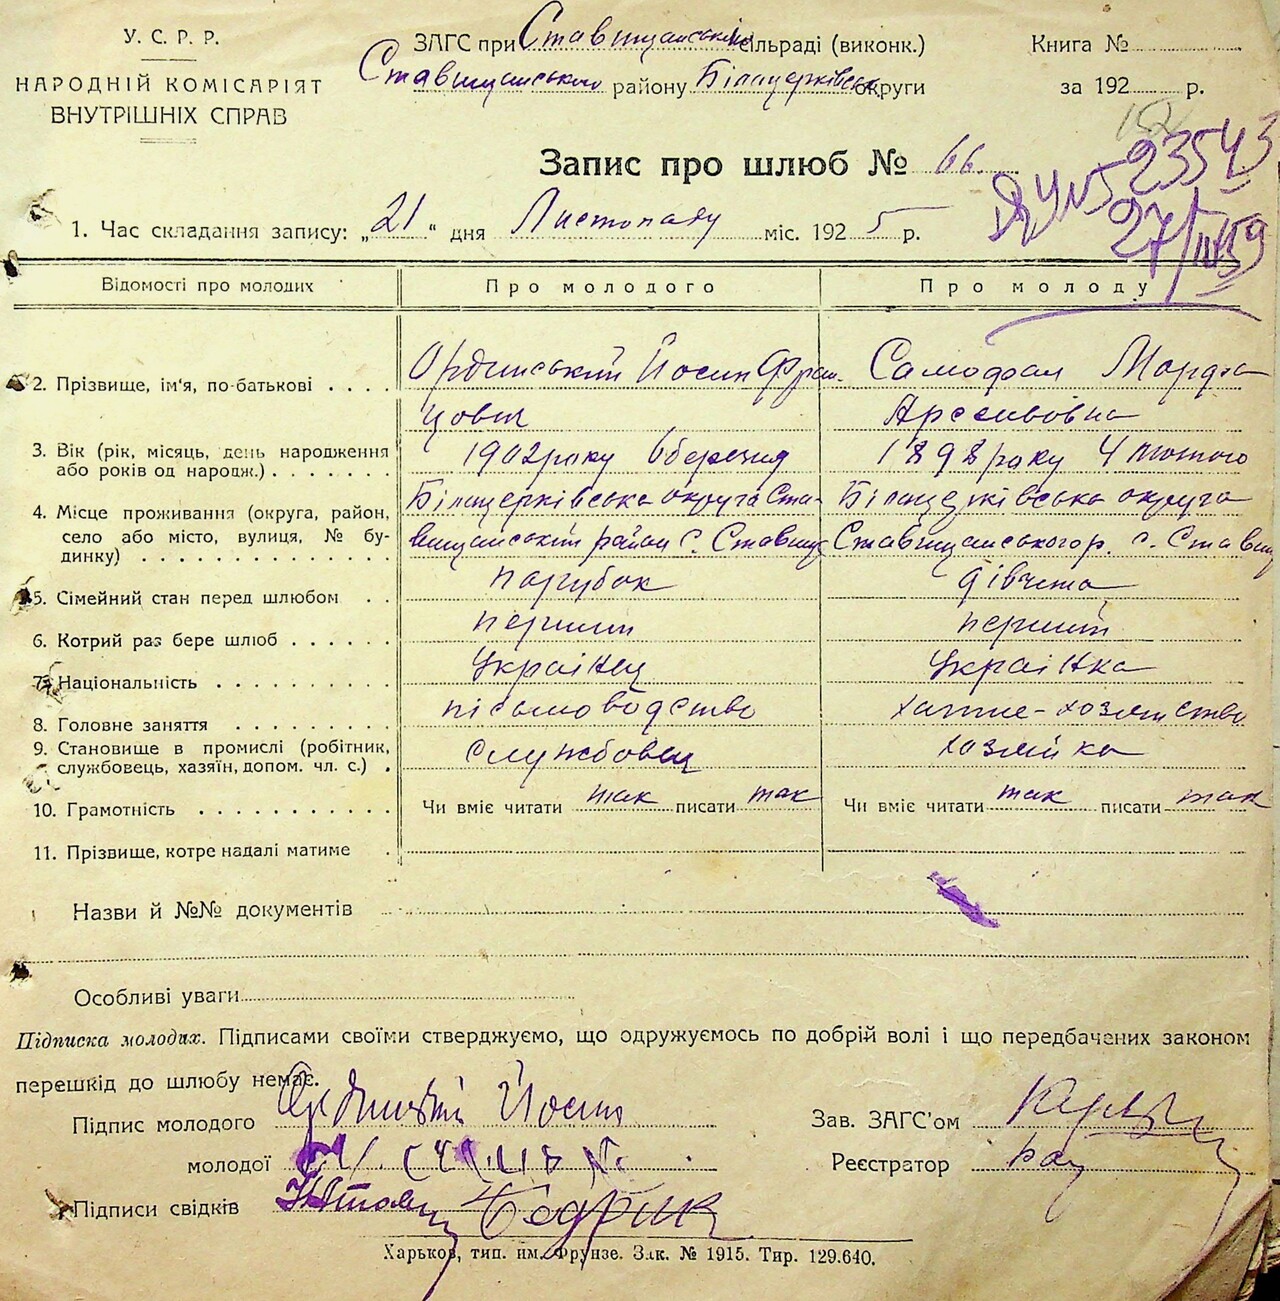 У. С. Р. Р.
НАРОДНІЙ КОМІСАРІЯТ
ВНУТРІШНІХ СПРАВ
ЗАГС при Ставищанській сільраді (виконк.)
Ставищанського району Білоцерківськ округи
Книга №
за 192 р.
152
Запис про шлюб № 66.
23543
27/
59
1. Час складання запису: „21" дня Листопаду міс. 1925 р.
Відомості про молодих Про молодого Про молоду
2. Прізвище, ім'я, по-батькові . . . . Ординський Йосип Фран- Самофал Марфа
цович Арсенівовна
3. Вік (рік, місяць, день народження 1902 року 6 березня 1898 року 4 лютого
або років од народж.) . . . . . . .
4. Місце проживання (округа, район, Білоцерківська округа Ста- Білоцерківська округа
село або місто, вулиця, № бу- вищанський район с. Ставищ Ставищанського р. с. Ставищ
динку) . . . . . . . . . . . .
5. Сімейний стан перед шлюбом . . парубок дівчина
6. Котрий раз бере шлюб . . . . . . перший перший
7. Національність . . . . . . . . . Українец Українка
8. Головне заняття . . . . . . . . письмоводство хатнє-хозяйство
9. Становище в промислі (робітник, службовец хозяйка
службовець, хазяїн, допом. чл. с.) .
10. Грамотність . . . . . . . . . . Чи вміє читати так писати так Чи вміє читати так писати так
11. Прізвище, котре надалі матиме .
Назви й №№ документів
Особливі уваги
Підписка молодих. Підписами своїми стверджуємо, що одружуємось по добрій волі і що передбачених законом
перешкід до шлюбу немає.
Підпис молодого Ординський Йосип Зав. ЗАГС'ом
молодої Реєстратор
Підписи свідків
Харьков, тип. им. Фрунзе. Зак. № 1915. Тир. 129.640.